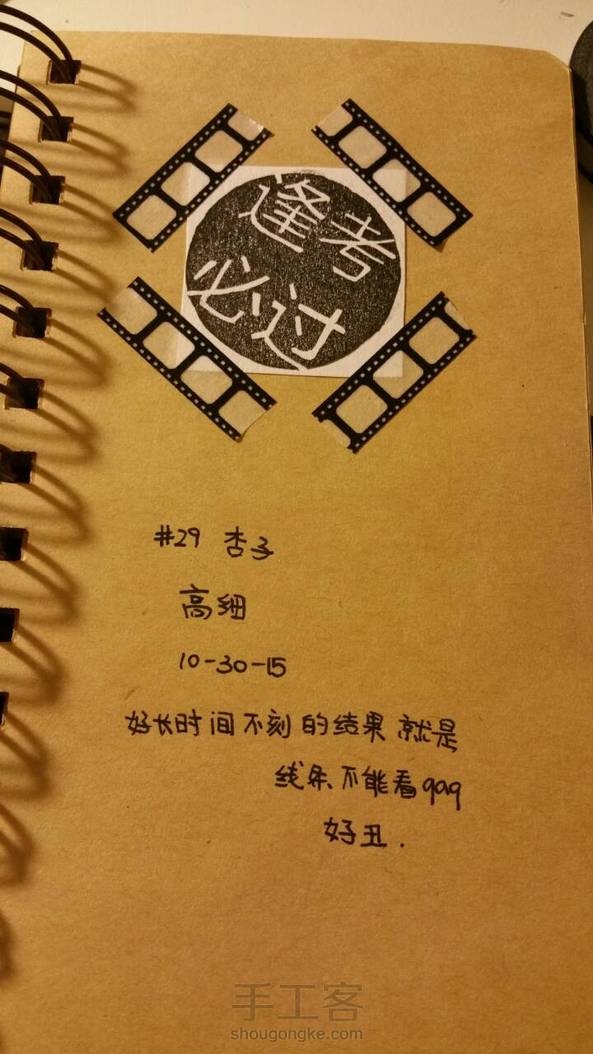 逢考
必过
#29 杏子
高细
10-30-15
好长时间不刻的结果就是
线条不能看qaq
好丑.
手工客
shougongke.com